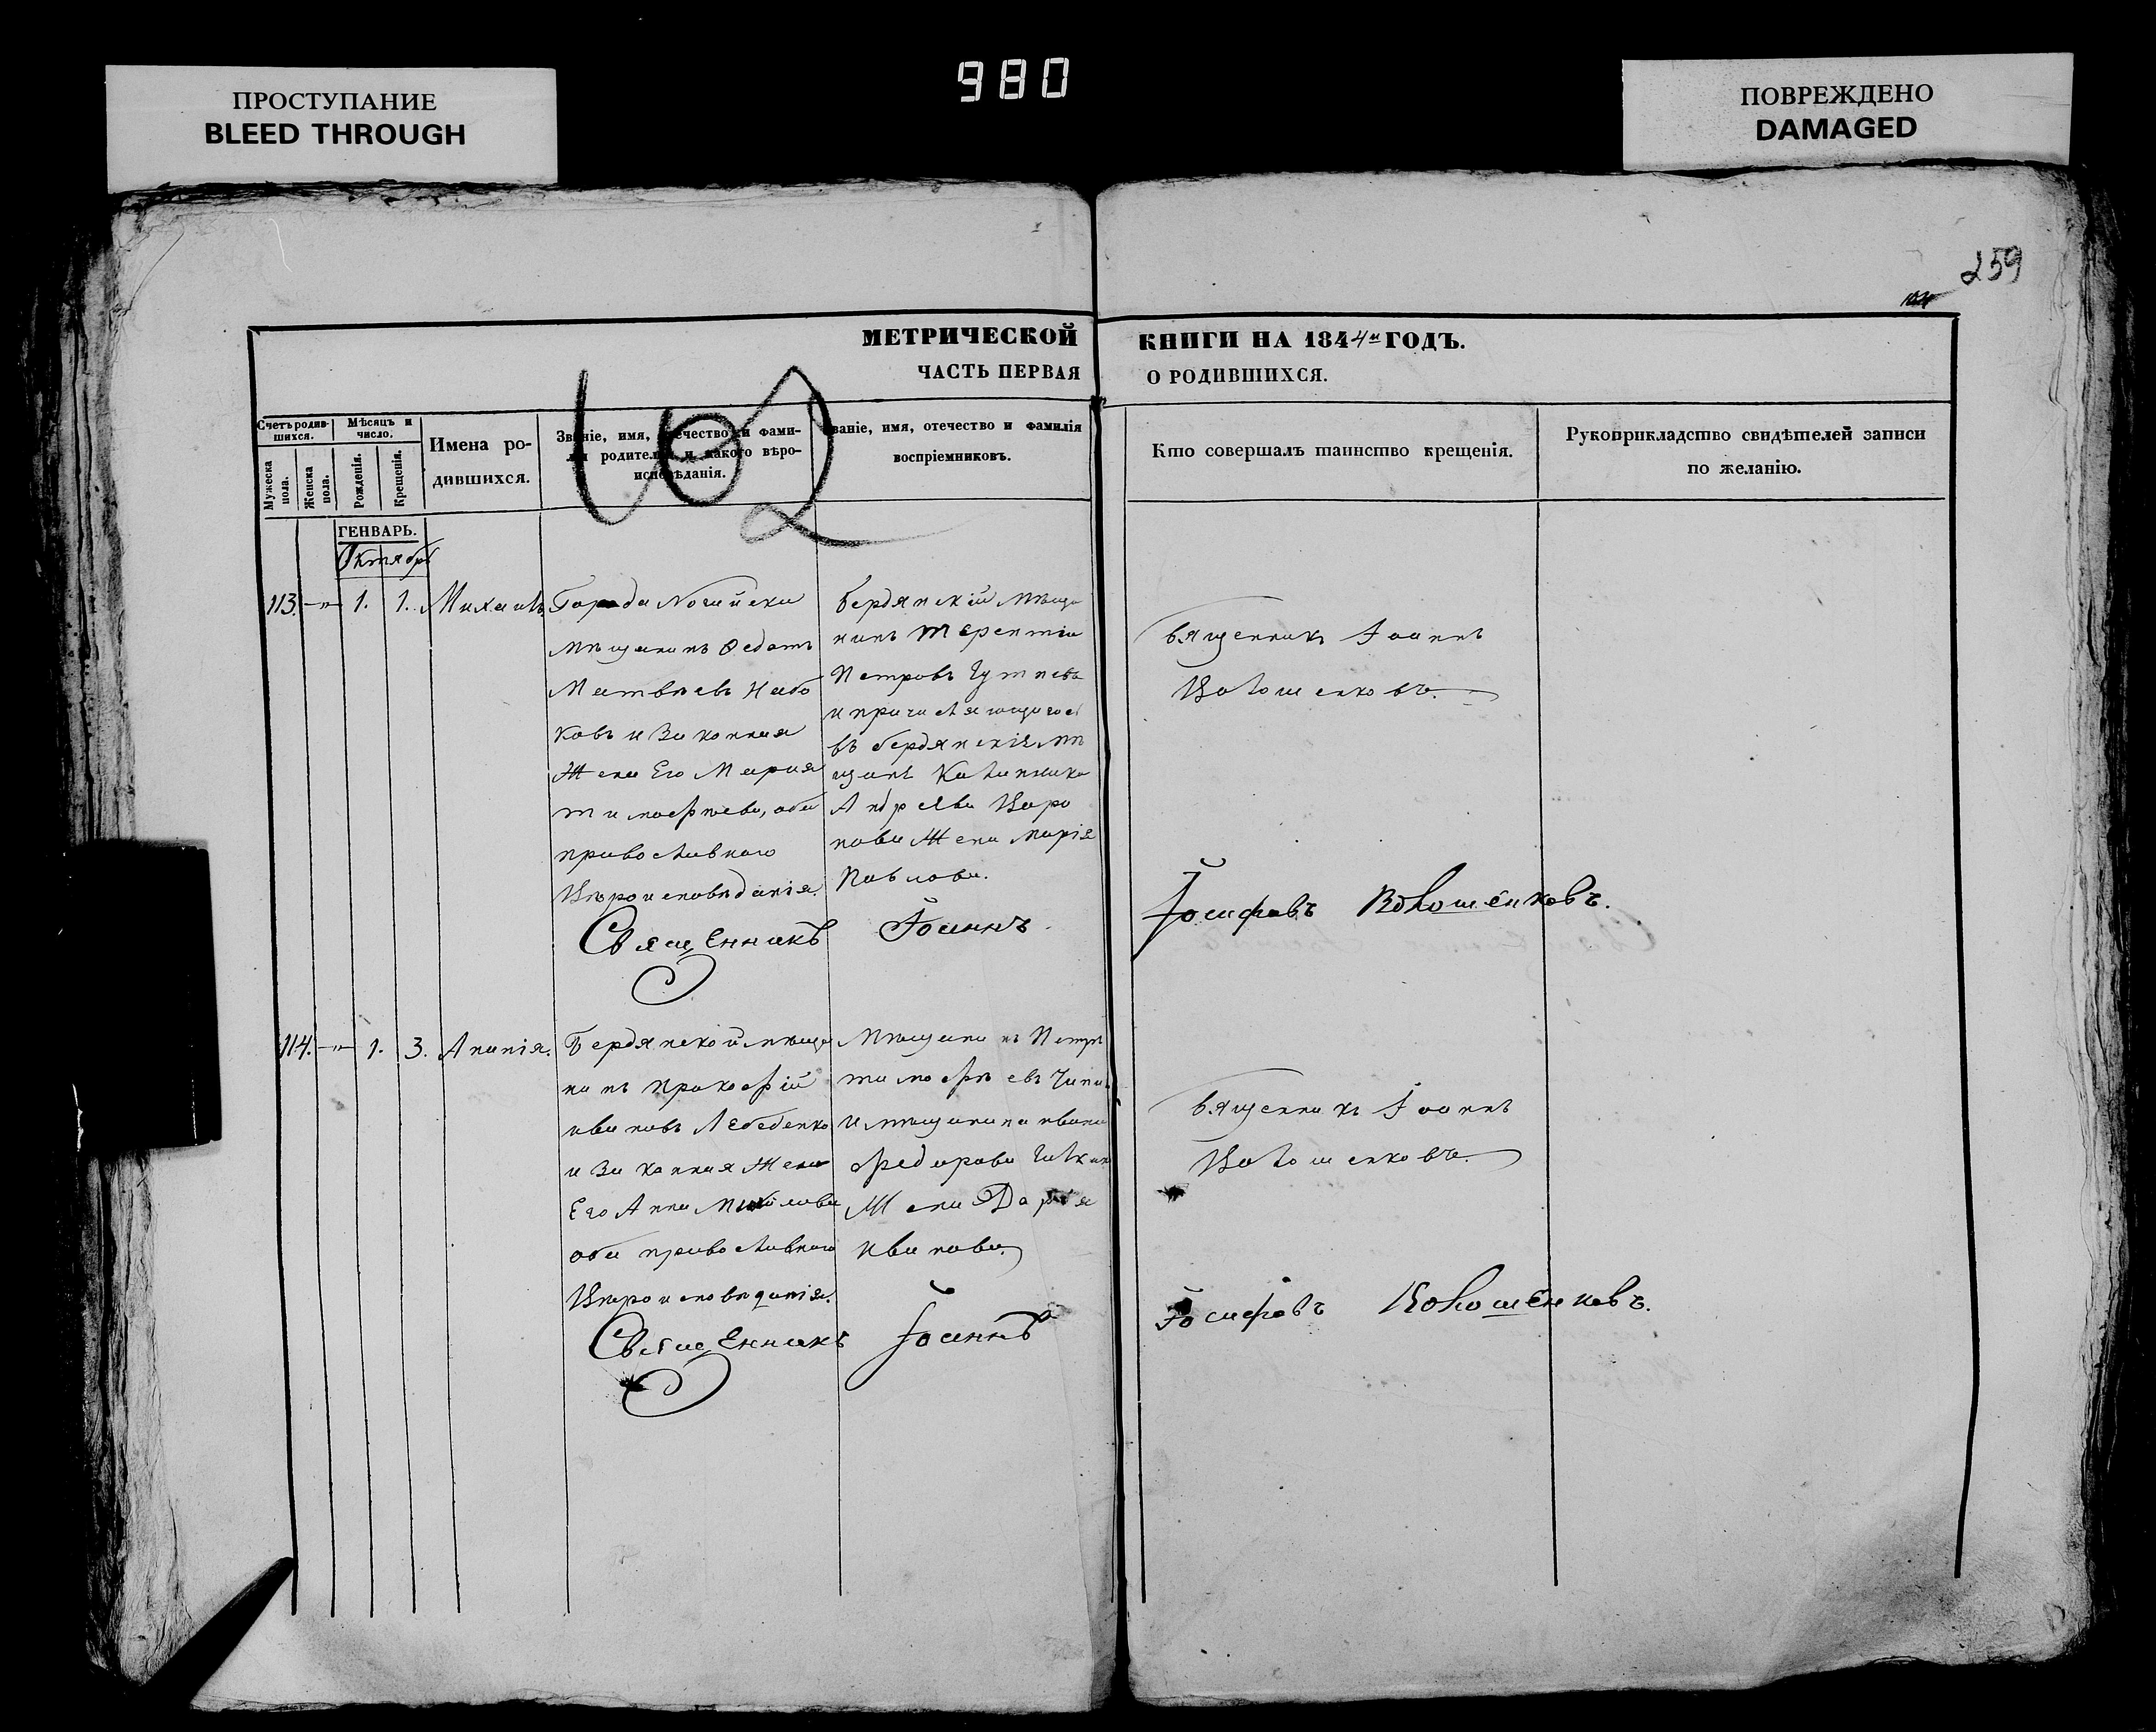 980
ПРОСТУПАНИЕ
BLEED THROUGH
ПОВРЕЖДЕНО
DAMAGED
259
МЕТРИЧЕСКОЙ КНИГИ НА 1844й ГОДЪ.
ЧАСТЬ ПЕРВАЯ О РОДИВШИХСЯ.
Счетъ родив-
шихся.
Мужеска пола.
Женска пола.
Мѣсяцъ и
число.
Рожденія.
Крещенія.
Имена ро-
дившихся.
Званіе, имя, отечество и фами-
лія родителей и какого вѣро-
исповѣданія.
Званіе, имя, отечество и фамилія
воспріемниковъ.
Кто совершалъ таинство крещенія.
Рукоприкладство свидѣтелей записи
по желанію.
ГЕНВАРЬ.
Октябрь
113. -"- 1. 1. Михаилъ
Города Ногайска
мѣщанинъ Федотъ
Матвѣевъ Набо
ковъ и Законная
Жена Его Мария
тимофѣева, оба
православнаго
Вѣроисповѣданія.
бердянскій мѣща
нинъ терентій
Петровъ
и причисляющагося
въ бердянскія мѣ
щанъ Калинника
Андрѣева Воро
нова Жена Марія
Павлова.
Священникъ Іоаннъ
Волошенковъ.
Священникъ Іоаннъ Іосифовъ Волошенковъ.
114. -"- 1. 3. Ананія.
Бердянской мѣща
нинъ Прокофій
ивановъ Лебеденко
и Законная Жена
Его Анна
оба православнаго
Вѣроисповѣданія.
Мѣщанинъ Петръ
тимофѣевъ
и мѣщанина ивана
федорова
Жена Дарія
иванова.
Священникъ Іоаннъ
Волошенковъ.
Священникъ Іоаннъ Іосифовъ Волошенковъ.